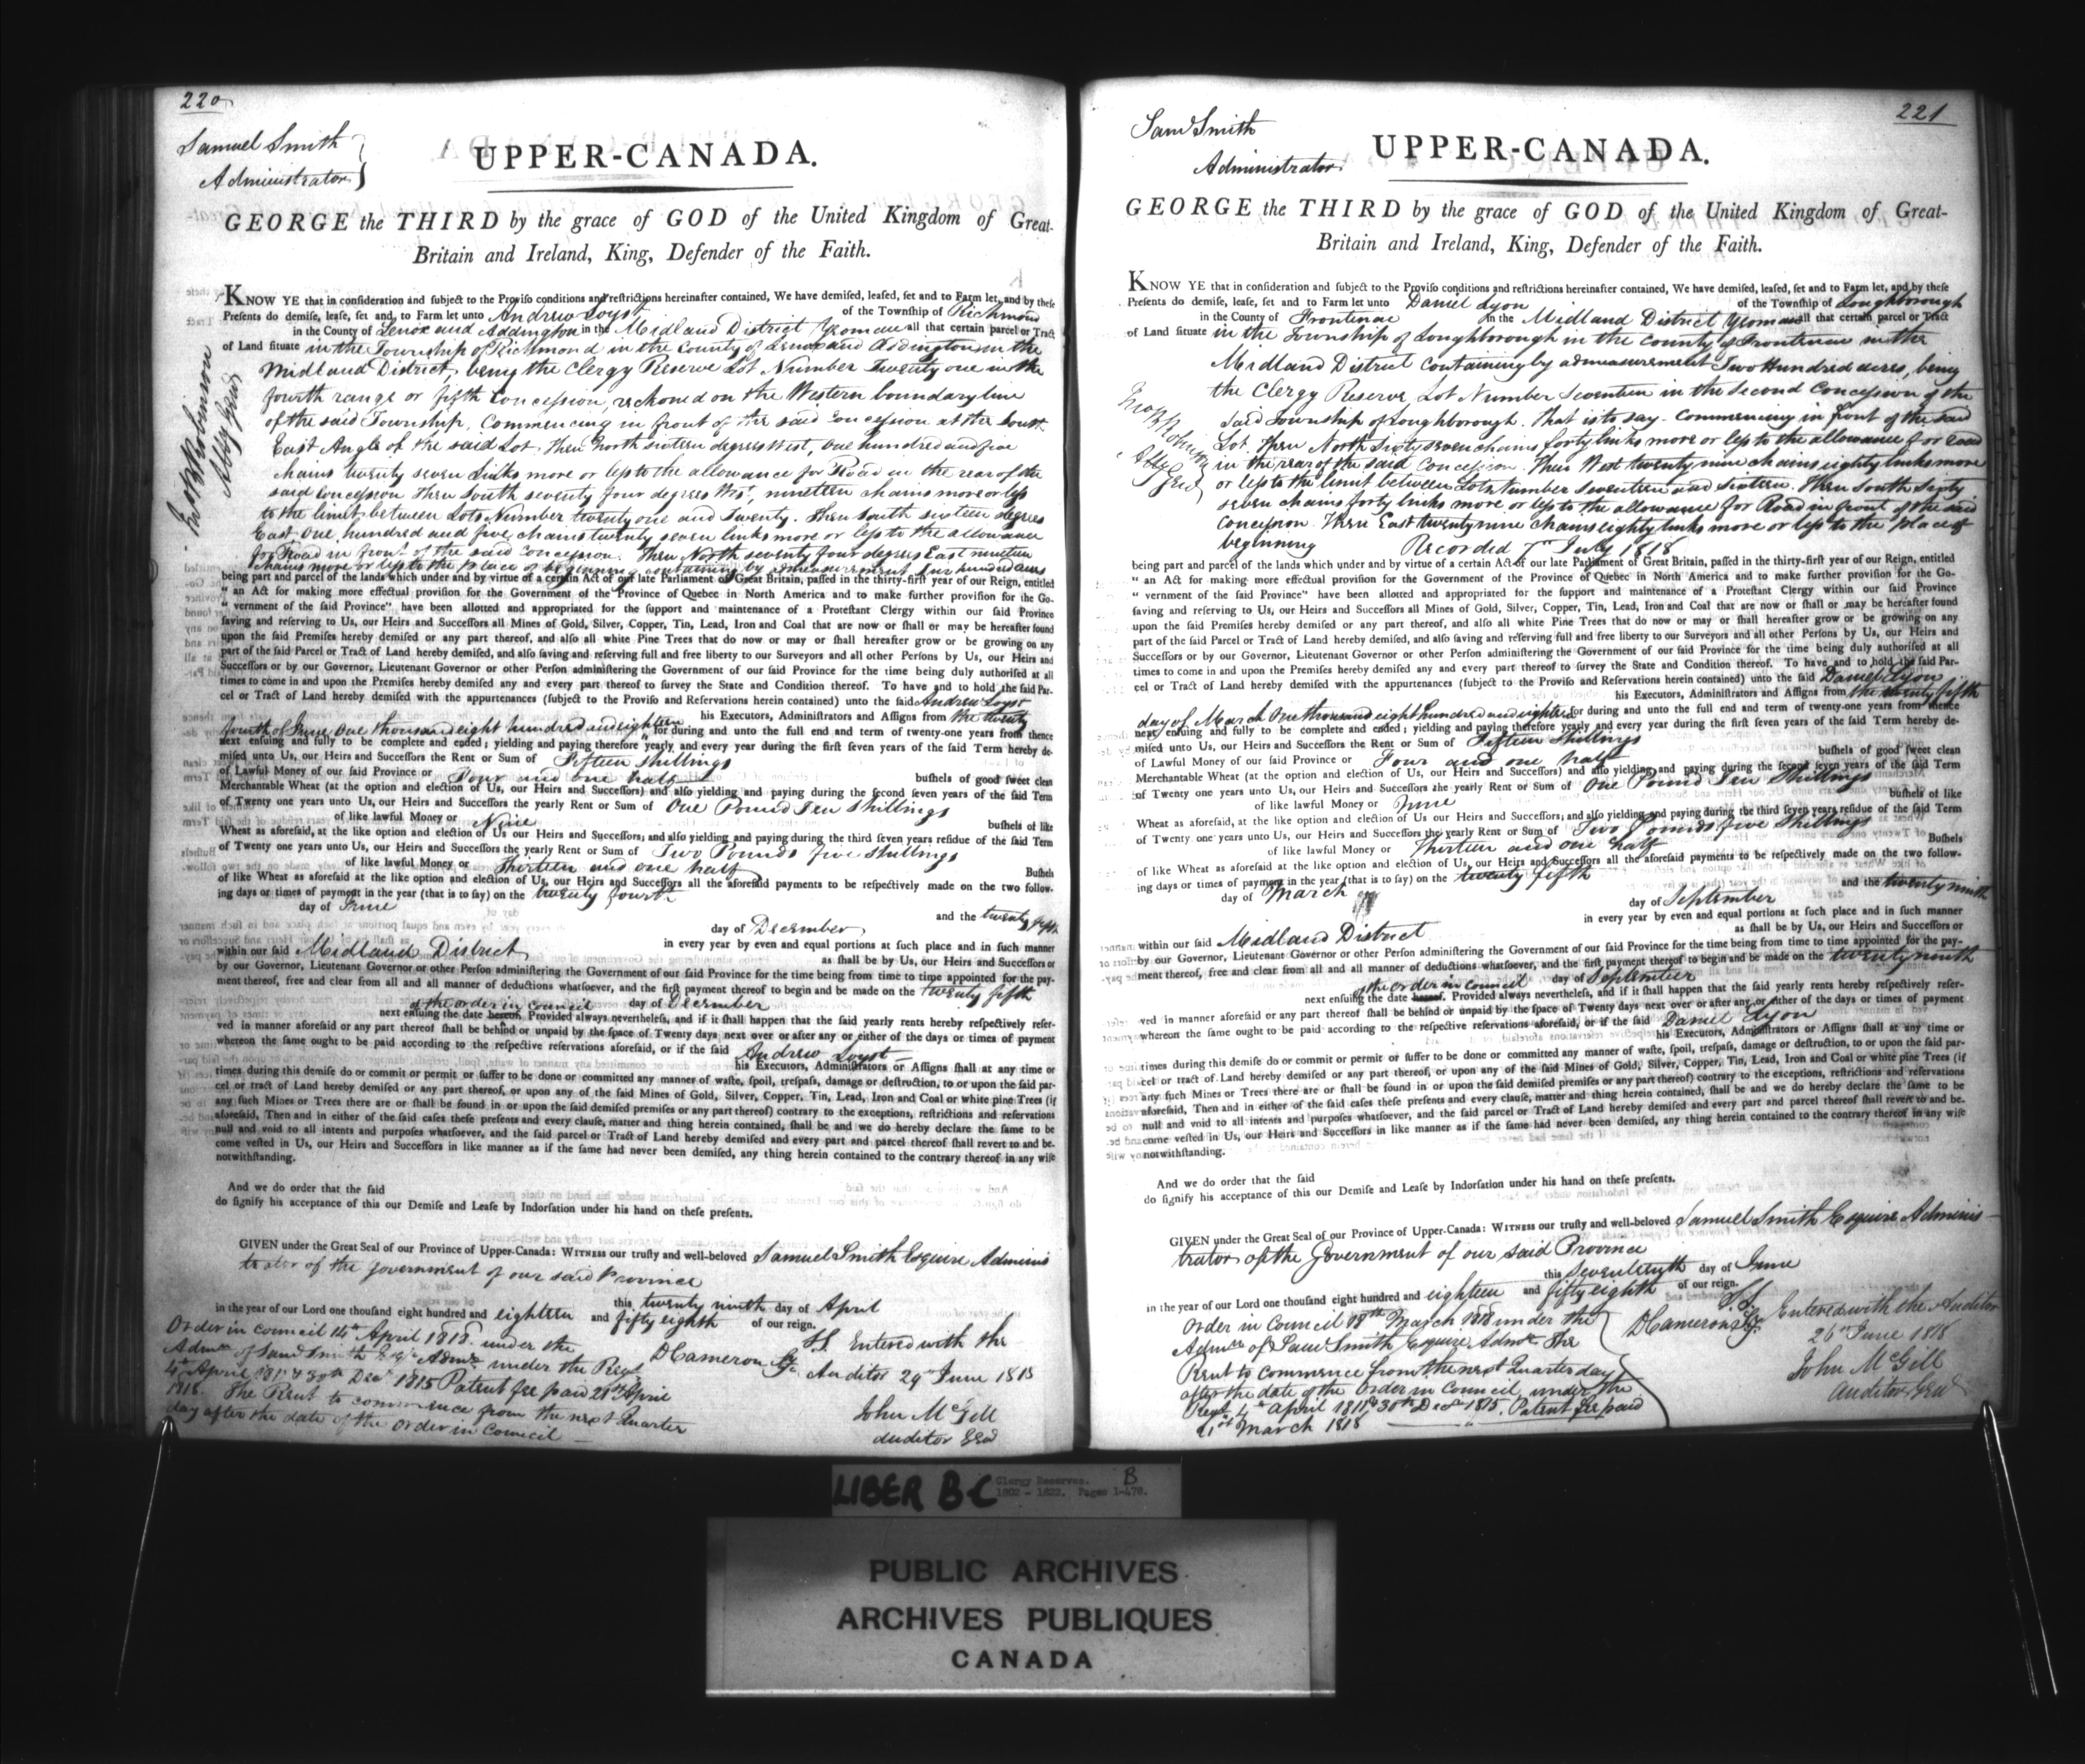 220
Samuel Smith
Administrator
UPPER-CANADA.
GEORGE the THIRD by the grace of GOD of the United Kingdom of Great-
Britain and Ireland, King, Defender of the Faith.
KNOW YE that in consideration and subject to the Proviso conditions and restrictions hereinafter contained, We have demised, leased, set and to Farm let, and by these
Presents do demise, lease, set and to Farm let unto Andrew Loyst of the Township of Richmond
in the County of Lenox and Addington in the Midland District Yeoman all that certain parcel or Tract
of Land situate in the Township of Richmond in the County of Lenox and Addington in the
Midland District, being the Clergy Reserve Lot Number Twenty one in the
fourth range or fifth Concession, reckoned on the Western boundary line
of the said Township. Commencing in front of the said Concession at the South
East Angle of the said Lot. Then North sixteen degrees West, One hundred and five
chains twenty seven Links more or less to the allowance for Road in the rear of the
said Concession Then South seventy four degrees West, nineteen chains more or less
to the limit between Lots Number twenty one and Twenty. Then South sixteen degrees
East, One hundred and five chains twenty seven links more or less to the allowance
for Road in front of the said Concession. Then North seventy four degrees East nineteen
chains more or less to the place of beginning containing by admeasurement hundred acres
Jno B Robinson
Atty Genl
being part and parcel of the lands which under and by virtue of a certain Act of our late Parliament of Great Britain, passed in the thirty-first year of our Reign, entitled
" an Act for making more effectual provision for the Government of the Province of Quebec in North America and to make further provision for the Go-
" vernment of the said Province" have been allotted and appropriated for the support and maintenance of a Protestant Clergy within our said Province
saving and reserving to Us, our Heirs and Successors all Mines of Gold, Silver, Copper, Tin, Lead, Iron and Coal that are now or shall or may be hereafter found
upon the said Premises hereby demised or any part thereof, and also all white Pine Trees that do now or may or shall hereafter grow or be growing on any
part of the said Parcel or Tract of Land hereby demised, and also saving and reserving full and free liberty to our Surveyors and all other Persons by Us, our Heirs and
Successors or by our Governor, Lieutenant Governor or other Person administering the Government of our said Province for the time being duly authorised at all
times to come in and upon the Premises hereby demised any and every part thereof to survey the State and Condition thereof. To have and to hold the said Par-
cel or Tract of Land hereby demised with the appurtenances (subject to the Proviso and Reservations herein contained) unto the said Andrew Loyst
his Executors, Administrators and Assigns from the twenty
fourth of June One thousand eight hundred and eighteen for during and unto the full end and term of twenty-one years from thence
next ensuing and fully to be complete and ended; yielding and paying therefore yearly and every year during the first seven years of the said Term hereby de-
mised unto Us, our Heirs and Successors the Rent or Sum of Fifteen shillings
of Lawful Money of our said Province or Four and one half bushels of good sweet clean
Merchantable Wheat (at the option and election of Us, our Heirs and Successors) and also yielding and paying during the second seven years of the said Term
of Twenty one years unto Us, our Heirs and Successors the yearly Rent or Sum of One Pound Ten Shillings
of like lawful Money or Nine bushels of like
Wheat as aforesaid, at the like option and election of Us our Heirs and Successors; and also yielding and paying during the third seven years residue of the said Term
of Twenty one years unto Us, our Heirs and Successors the yearly Rent or Sum of Two Pounds five Shillings
of like lawful Money or Thirteen and one half Bushels
of like Wheat as aforesaid at the like option and election of Us, our Heirs and Successors all the aforesaid payments to be respectively made on the two follow-
ing days or times of payment in the year (that is to say) on the twenty fourth
day of June and the twenty fifth
day of December
in every year by even and equal portions at such place and in such manner
within our said Midland District as shall be by Us, our Heirs and Successors or
by our Governor, Lieutenant Governor or other Person administering the Government of our said Province for the time being from time to time appointed for the pay-
ment thereof, free and clear from all and all manner of deductions whatsoever, and the first payment thereof to begin and be made on the twenty fifth
of the order in council day of December
next ensuing the date hereof. Provided always nevertheless, and if it shall happen that the said yearly rents hereby respectively reser-
ved in manner aforesaid or any part thereof shall be behind or unpaid by the space of Twenty days next over or after any or either of the days or times of payment
whereon the same ought to be paid according to the respective reservations aforesaid, or if the said Andrew Loyst
his Executors, Administrators or Assigns shall at any time or
times during this demise do or commit or permit or suffer to be done or committed any manner of waste, spoil, trespass, damage or destruction, to or upon the said par-
cel or tract of Land hereby demised or any part thereof, or upon any of the said Mines of Gold, Silver, Copper, Tin, Lead, Iron and Coal or white pine Trees (if
any such Mines or Trees there are or shall be found in or upon the said demised premises or any part thereof) contrary to the exceptions, restrictions and reservations
aforesaid, Then and in either of the said cases these presents and every clause, matter and thing herein contained, shall be and we do hereby declare the same to be
null and void to all intents and purposes whatsoever, and the said parcel or Tract of Land hereby demised and every part and parcel thereof shall revert to and be-
come vested in Us, our Heirs and Successors in like manner as if the same had never been demised, any thing herein contained to the contrary thereof in any wise
notwithstanding.
And we do order that the said
do signify his acceptance of this our Demise and Lease by Indorsation under his hand on these presents.
GIVEN under the Great Seal of our Province of Upper-Canada: WITNESS our trusty and well-beloved Samuel Smith Esquire Adminis
trator of the Government of our said Province
this twenty ninth day of April
in the year of our Lord one thousand eight hundred and eighteen and fifty eighth of our reign.
Order in Council 14th April 1818. under the
Admn of Saml Smith Esqr Admr under the Regs
4th April 1811 & 30th Decr 1815 Patent fee paid 28th April
1818. The Rent to commence from the next Quarter
day after the date of the Order in Council
DCameron Sy
S.S. Entered with the
Auditor 29th June 1818
John McGill
Auditor Genl
221
Saml Smith
Administrator
UPPER-CANADA.
GEORGE the THIRD by the grace of GOD of the United Kingdom of Great-
Britain and Ireland, King, Defender of the Faith.
KNOW YE that in consideration and subject to the Proviso conditions and restrictions hereinafter contained, We have demised, leased, set and to Farm let, and by these
Presents do demise, lease, set and to Farm let unto Daniel Lyon of the Township of Loughborough
in the County of Frontenac in the Midland District Yeoman all that certain parcel or Tract
of Land situate in the Township of Loughborough in the County of Frontenac in the
Midland District Containing by admeasurement Two Hundred acres, being
the Clergy Reserve Lot Number Seventeen in the Second Concession of the
said Township of Loughborough. That is to say. Commencing in front of the said
Lot. Then North Sixty seven chains forty links more or less to the allowance for road
in the rear of the said Concession. Then West twenty nine chains eighty links more
or less to the limit between Lots Number Seventeen and Sixteen. Then South Sixty
seven chains forty links more or less to the allowance for Road in front of the said
Concession. Then East twenty nine chains eighty links more or less to the place of
beginning Recorded 7th July 1818
Jno B Robinson
Atty Genl
being part and parcel of the lands which under and by virtue of a certain Act of our late Parliament of Great Britain, passed in the thirty-first year of our Reign, entitled
" an Act for making more effectual provision for the Government of the Province of Quebec in North America and to make further provision for the Go-
" vernment of the said Province" have been allotted and appropriated for the support and maintenance of a Protestant Clergy within our said Province
saving and reserving to Us, our Heirs and Successors all Mines of Gold, Silver, Copper, Tin, Lead, Iron and Coal that are now or shall or may be hereafter found
upon the said Premises hereby demised or any part thereof, and also all white Pine Trees that do now or may or shall hereafter grow or be growing on any
part of the said Parcel or Tract of Land hereby demised, and also saving and reserving full and free liberty to our Surveyors and all other Persons by Us, our Heirs and
Successors or by our Governor, Lieutenant Governor or other Person administering the Government of our said Province for the time being duly authorised at all
times to come in and upon the Premises hereby demised any and every part thereof to survey the State and Condition thereof. To have and to hold the said Par-
cel or Tract of Land hereby demised with the appurtenances (subject to the Proviso and Reservations herein contained) unto the said Daniel Lyon
his Executors, Administrators and Assigns from the twenty fifth
day of March One thousand eight hundred and eighteen for during and unto the full end and term of twenty-one years from thence
next ensuing and fully to be complete and ended; yielding and paying therefore yearly and every year during the first seven years of the said Term hereby de-
mised unto Us, our Heirs and Successors the Rent or Sum of Fifteen Shillings
of Lawful Money of our said Province or Four and one half bushels of good sweet clean
Merchantable Wheat (at the option and election of Us, our Heirs and Successors) and also yielding and paying during the second seven years of the said Term
of Twenty one years unto Us, our Heirs and Successors the yearly Rent or Sum of One Pound Ten Shillings
of like lawful Money or Nine bushels of like
Wheat as aforesaid, at the like option and election of Us our Heirs and Successors; and also yielding and paying during the third seven years residue of the said Term
of Twenty one years unto Us, our Heirs and Successors the yearly Rent or Sum of Two Pounds five Shillings
of like lawful Money or Thirteen and one half Bushels
of like Wheat as aforesaid at the like option and election of Us, our Heirs and Successors all the aforesaid payments to be respectively made on the two follow-
ing days or times of payment in the year (that is to say) on the twenty fifth
day of March and the twenty ninth
day of September
in every year by even and equal portions at such place and in such manner
within our said Midland District as shall be by Us, our Heirs and Successors or
by our Governor, Lieutenant Governor or other Person administering the Government of our said Province for the time being from time to time appointed for the pay-
ment thereof, free and clear from all and all manner of deductions whatsoever, and the first payment thereof to begin and be made on the twenty ninth
of the order in council day of September
next ensuing the date hereof. Provided always nevertheless, and if it shall happen that the said yearly rents hereby respectively reser-
ved in manner aforesaid or any part thereof shall be behind or unpaid by the space of Twenty days next over or after any or either of the days or times of payment
whereon the same ought to be paid according to the respective reservations aforesaid, or if the said Daniel Lyon
his Executors, Administrators or Assigns shall at any time or
times during this demise do or commit or permit or suffer to be done or committed any manner of waste, spoil, trespass, damage or destruction, to or upon the said par-
cel or tract of Land hereby demised or any part thereof, or upon any of the said Mines of Gold, Silver, Copper, Tin, Lead, Iron and Coal or white pine Trees (if
any such Mines or Trees there are or shall be found in or upon the said demised premises or any part thereof) contrary to the exceptions, restrictions and reservations
aforesaid, Then and in either of the said cases these presents and every clause, matter and thing herein contained, shall be and we do hereby declare the same to be
null and void to all intents and purposes whatsoever, and the said parcel or Tract of Land hereby demised and every part and parcel thereof shall revert to and be-
come vested in Us, our Heirs and Successors in like manner as if the same had never been demised, any thing herein contained to the contrary thereof in any wise
notwithstanding.
And we do order that the said
do signify his acceptance of this our Demise and Lease by Indorsation under his hand on these presents.
GIVEN under the Great Seal of our Province of Upper-Canada: WITNESS our trusty and well-beloved Samuel Smith Esquire Adminis
trator of the Government of our said Province
this Seventeenth day of June
in the year of our Lord one thousand eight hundred and eighteen and fifty eighth of our reign.
Order in Council 18th March 1818 under the
Admn of Saml Smith Esquire Admr The
Rent to commence from the next Quarter day
after the date of the Order in Council under the
Regs 4th April 1811 & 30th Decr 1815. Patent fee paid
21st March 1818
DCameron Sy
S.S.
Entered with the Auditor
26th June 1818
John McGill
Auditor Genl
LIBER B-C Clergy Reserves. B
1802 - 1822. Pages 1-470.
PUBLIC ARCHIVES
ARCHIVES PUBLIQUES
CANADA